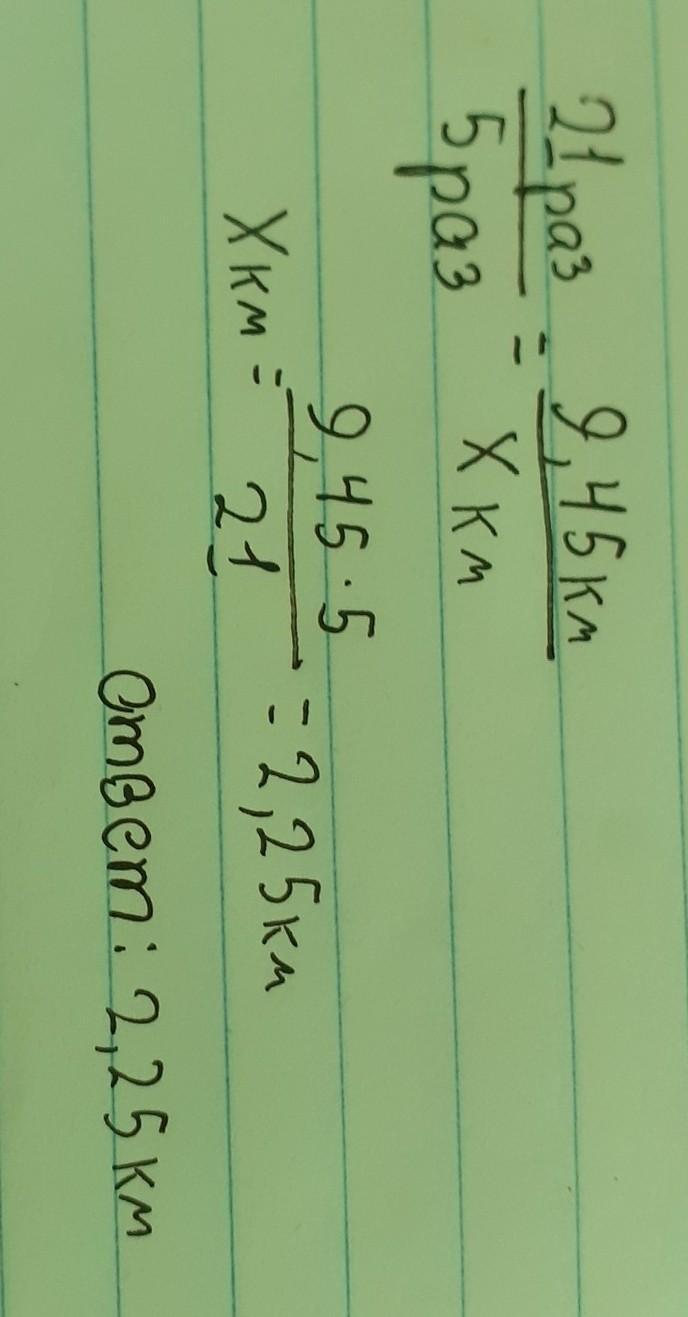 21 раз = 9,45 км
5 раз х км
х км = 9,45 · 5 = 2,25 км
21
Ответ: 2,25 км